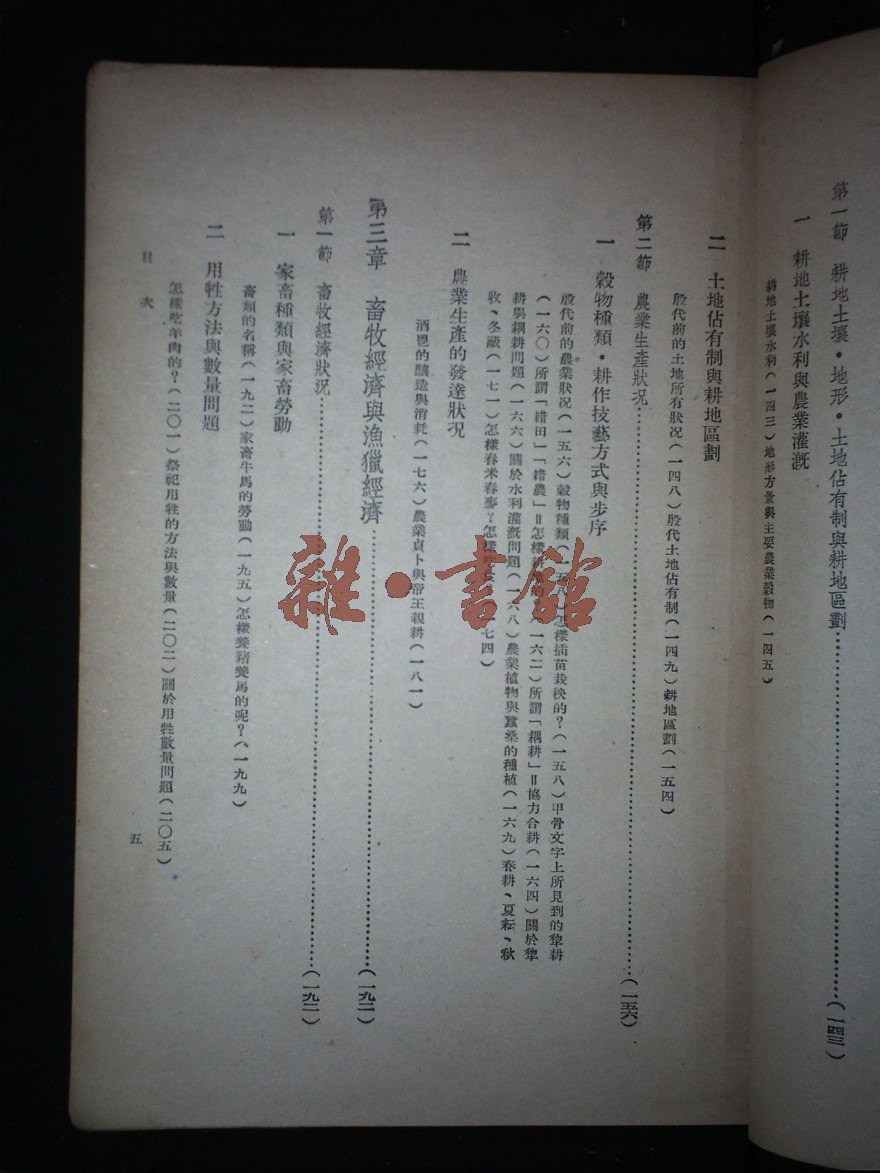 第一節　耕地土壤・地形・土地佔有制與耕地區劃……(一四三)
一　耕地土壤水利與農業灌溉
耕地土壤水利(一四三)地形方景與主要農業穀物(一四五)
二　土地佔有制與耕地區劃
殷代前的土地所有狀況(一四八)殷代土地佔有制(一四九)耕地區劃(一五四)
第二節　農業生產狀況……(一五六)
一　穀物種類・耕作技藝方式與步序
殷代前的農業狀況(一五六)穀物種類(一五八)怎樣插苗栽秧的？(一五八)甲骨文字上所見到的犂耕
(一六〇)所謂「耤田」「耤農」＝怎樣的？(一六二)所謂「耦耕」＝協力合耕(一六四)關於犂
耕與耦耕問題(一六六)關於水利灌溉問題(一六八)農業植物與蠶桑的種植(一六九)春耕、夏耘、秋
收、冬藏(一七一)怎樣舂米舂麥？怎樣一七四)
二　農業生產的發達狀況
酒鬯的釀造與消耗(一七六)農業貞卜與帝王親耕(一八一)
第三章　畜牧經濟與漁獵經濟……(一九二)
第一節　畜牧經濟狀況……(一九二)
一　家畜種類與家畜勞動
畜類的名稱(一九二)家畜牛馬的勞動(一九五)怎樣養豬養馬的呢？(一九九)
二　用牲方法與數量問題
怎樣吃羊肉的？(二〇一)祭祀用牲的方法與數量(二〇二)關於用牲數量問題(二〇五)
目次
五
雜・書館